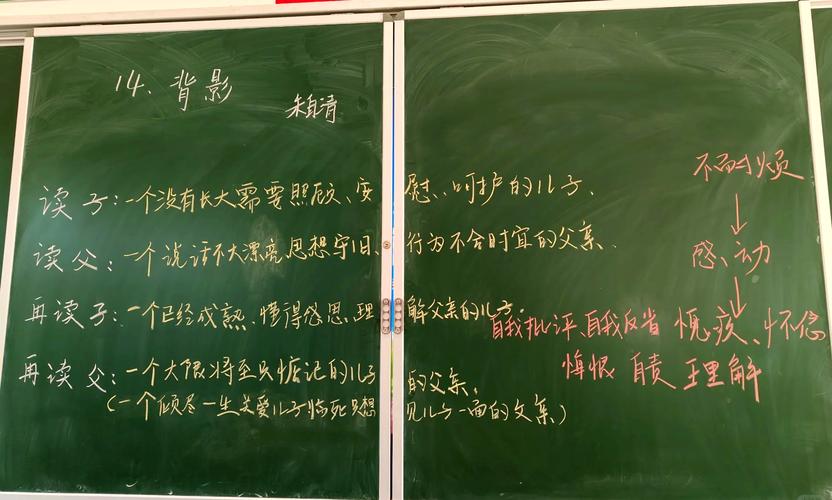 14. 背影
朱自清
读子:一个没有长大需要照顾、安慰、呵护的儿子.
读父:一个说话不大漂亮思想守旧、行为不合时宜的父亲.
再读子:一个已经成熟、懂得感恩、理解父亲的儿子.
再读父:一个大限将至只惦记的儿子的父亲.
(一个倾尽一生关爱儿子临死只想见儿子一面的父亲)
不耐烦
↓
感动
↓
自我批评、自我反省 愧疚、怀念
悔恨 自责 理解